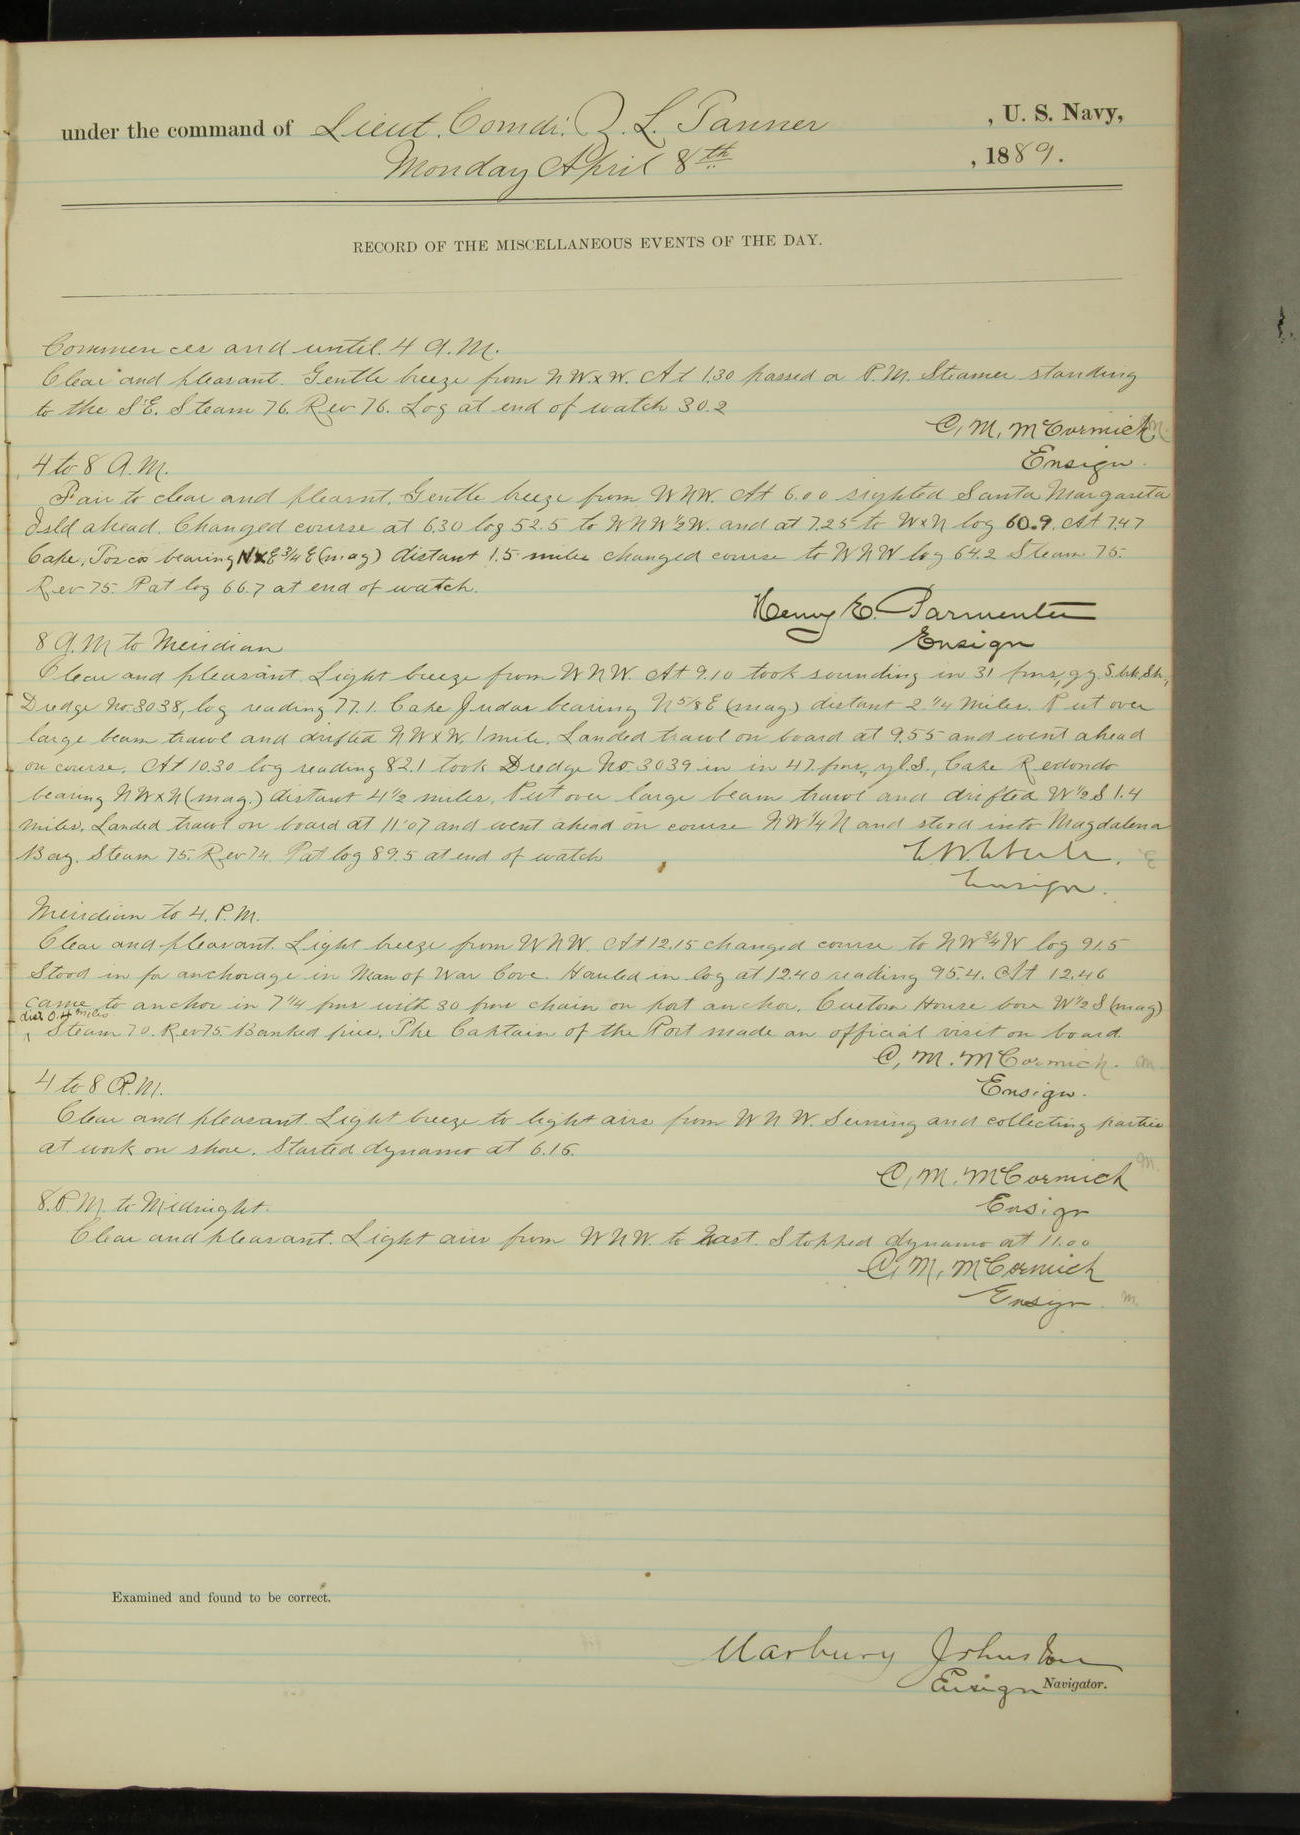 under the command of Lieut. Comdr. Z. L. Tanner , U. S. Navy,
Monday April 8th , 1889.
RECORD OF THE MISCELLANEOUS EVENTS OF THE DAY.
Commences and until 4 A.M.
Clear and pleasant. Gentle breeze from NW x W. At 1.30 passed a P.M. Steamer standing
to the S'E. Steam 76. Rev 76. Log at end of watch 30.2
C. M. McCormick
Ensign.
4 to 8 A.M.
Fair to clear and plearnt. Gentle breeze from WNW. At 6.00 sighted Santa Margareta
Isld ahead. Changed course at 6.30 log 52.5 to WNW ½ W. and at 7.25 to W x N log 60.9. At 7.47
Cake, Tosco bearing N x E ¾ E (mag) distant 1.5 miles changed course to WNW log 64.2 Steam 75.
Rev 75. Pat log 66.7 at end of watch.
Henry E. Parmenter
Ensign
8 A.M to Meridian
Clear and pleasant. Light breeze from WNW. At 9.10 took sounding in 31 fms, gy. S. bk. Sh.,
Dredge No. 3038, log reading 77.1. Cake Judas bearing N 5/8 E (mag) distant 2 ¼ miles. Put over
large beam trawl and drifted NW x W. 1 mile. Landed trawl on board at 9.55 and went ahead
on course. At 10.30 log reading 82.1 took Dredge No 3039 in in 47 fms, yl. S., Cake Redondo
bearing NW x N (mag.) distant 4 ½ miles. Put over large beam trawl and drifted W ½ S 1.4
miles. Landed trawl on board at 11.07 and went ahead on course NW ¼ N and stood into Magdalena
Bay. Steam 75. Rev 74. Pat log 89.5 at end of watch
Ensign.
Meridian to 4. P.M.
Clear and pleasant. Light breeze from WNW. At 12.15 changed course to NW ¾ W log 91.5
Stood in for anchorage in Man of War Cove. Hauled in log at 12.40 reading 95.4. At 12.46
came to anchor in 7 ¼ fms with 30 fms chain on port anchor. Custom House bore W ½ S (mag)
dist 0.4 miles
Steam 70. Rev 75. Banked fires. The Captain of the Port made an official visit on board.
C. M. McCormick.
Ensign.
4 to 8 P.M.
Clear and pleasant. Light breeze to light airs from WNW. Seining and collecting parties
at work on shore. Started dynamo at 6.15.
C. M. McCormick
Ensign
8. P.M. to Midnight.
Clear and pleasant. Light airs from WNW. to East. Stopped dynamo at 11.00
C. M. McCormick
Ensign.
Examined and found to be correct.
Marbury Johnston
Ensign Navigator.